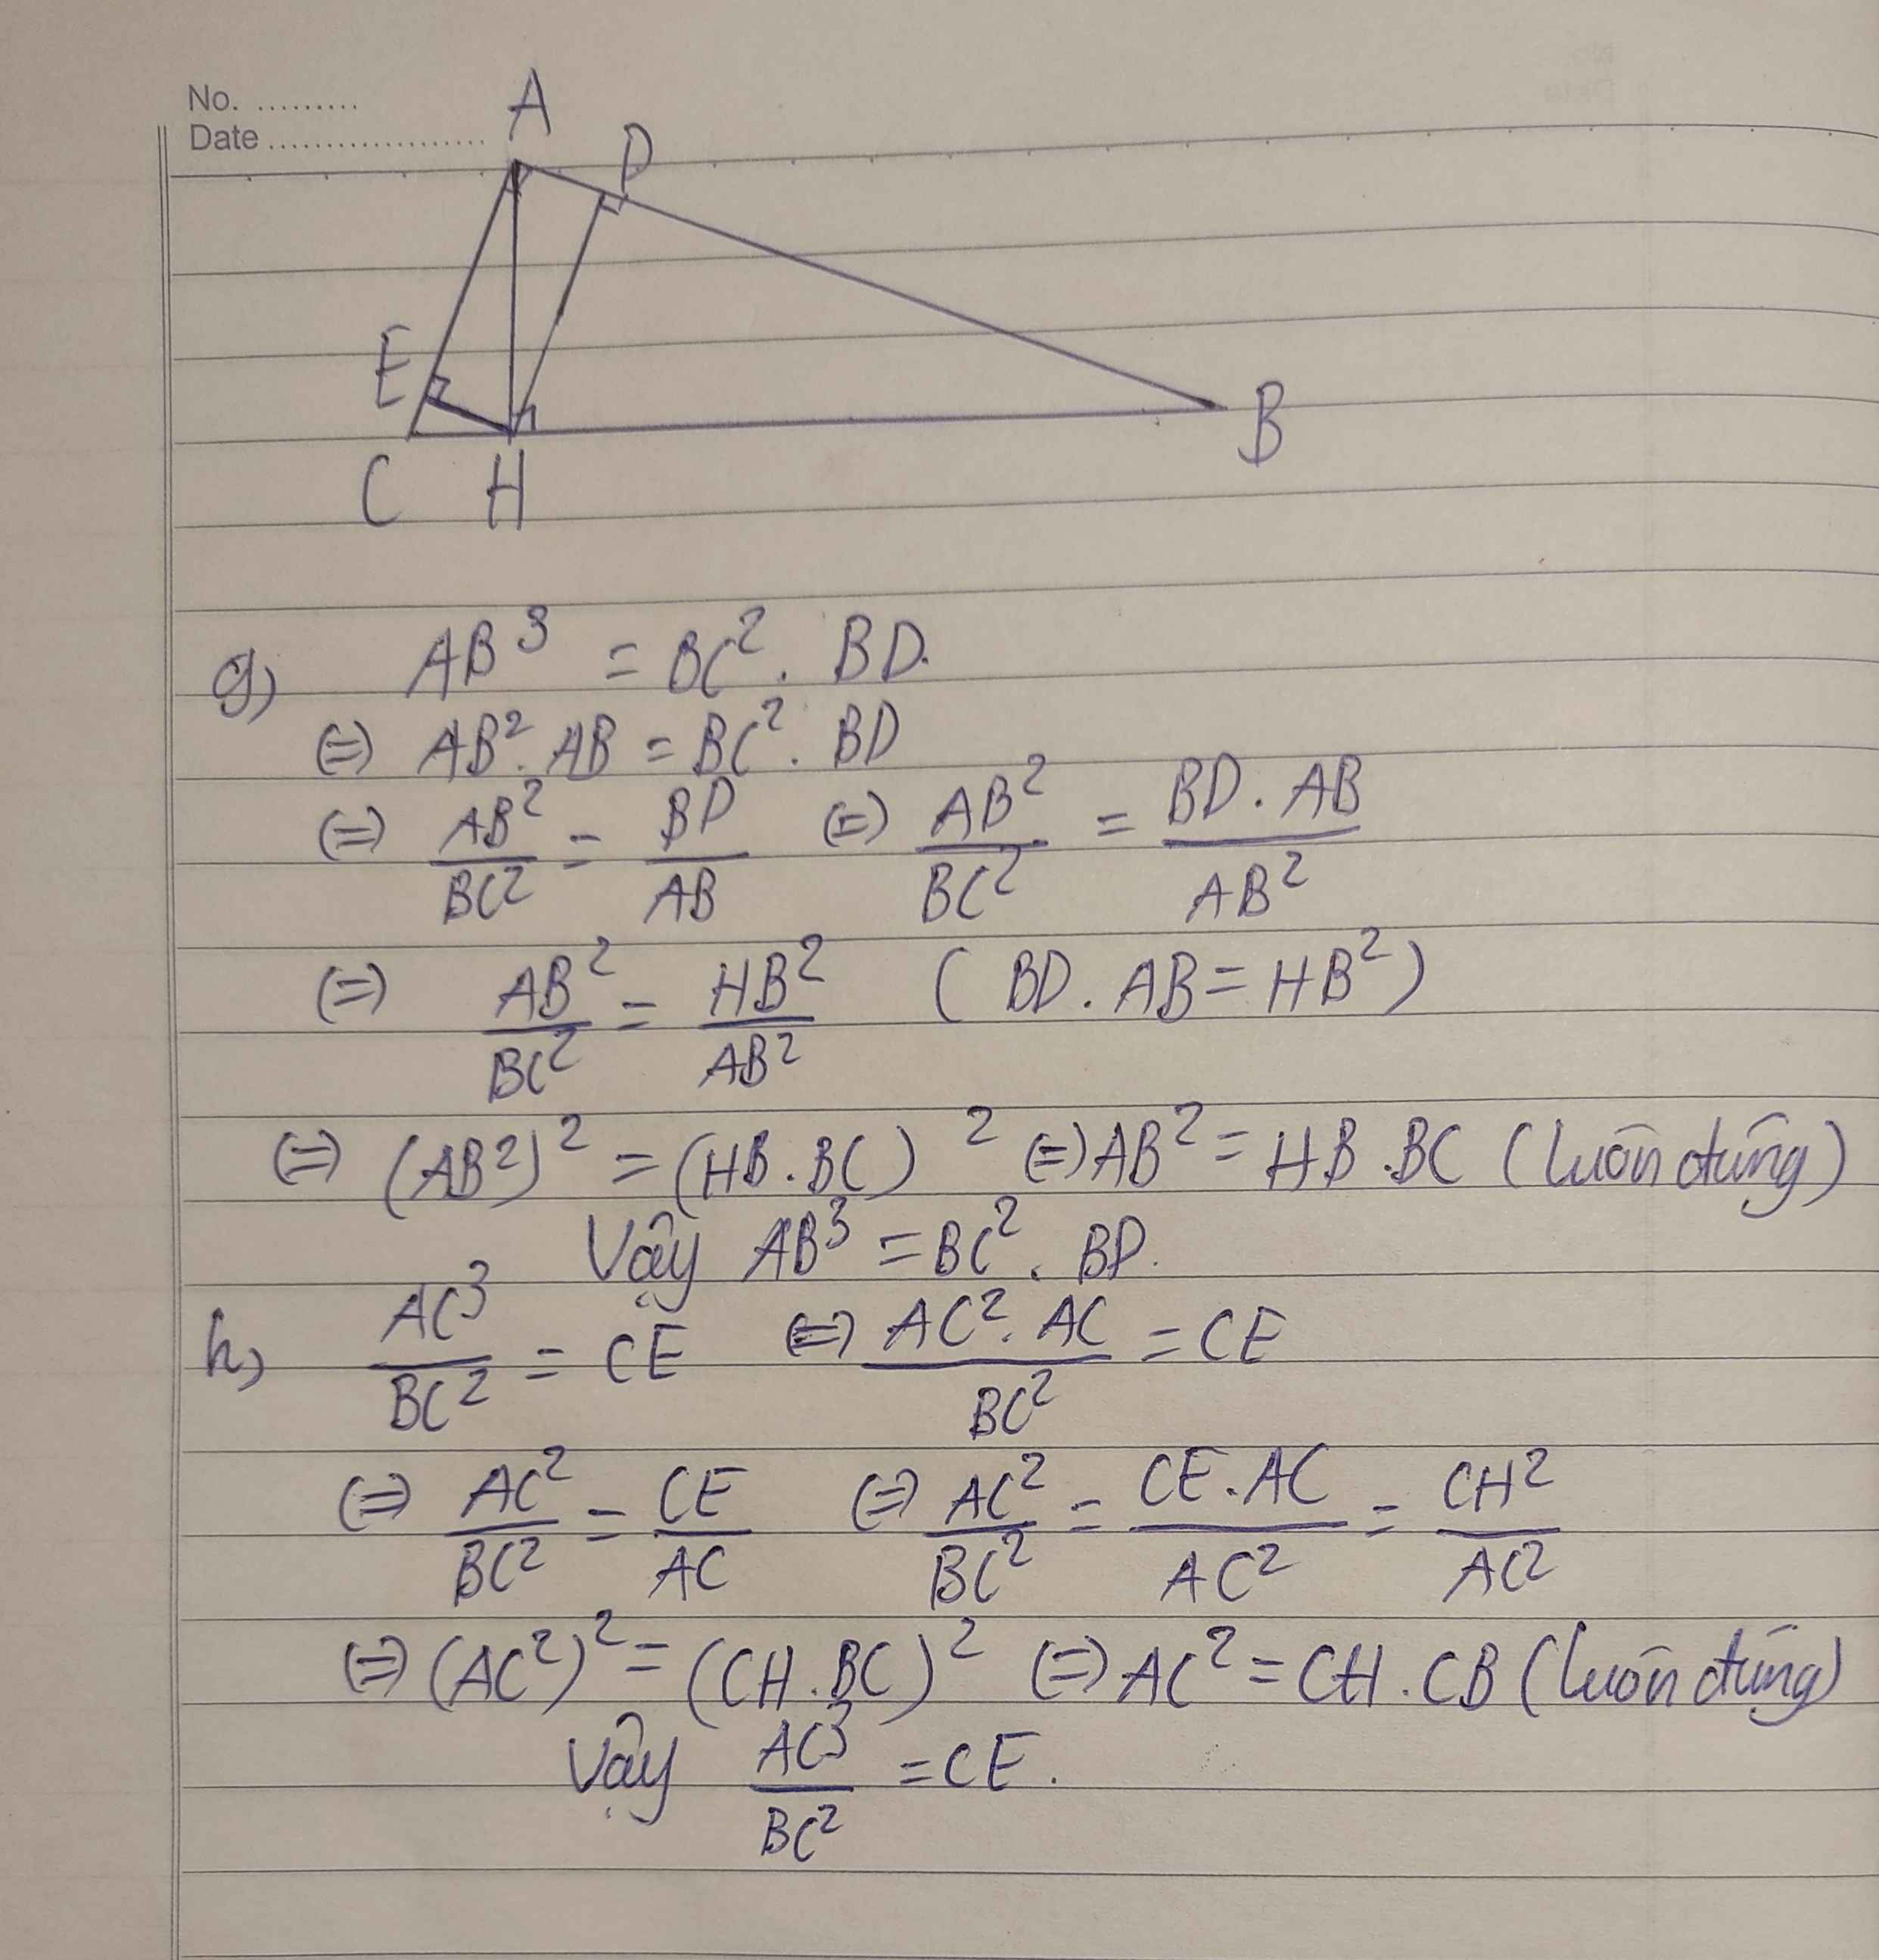 No. .........
Date ...................
A
D
E
C H
B
g) AB³ = BC² . BD.
(=) AB² . AB = BC² . BD
(=) AB²/BC² = BD/AB (=) AB²/BC² = BD . AB/AB²
(=) AB²/BC² = HB²/AB² ( BD . AB = HB² )
(=) (AB²)² = (HB . BC)² (=) AB² = HB . BC (luôn đúng)
Vậy AB³ = BC² . BD.
h) AC³/BC² = CE (=) AC² . AC/BC² = CE
(=) AC²/BC² = CE/AC (=) AC²/BC² = CE . AC/AC² = CH²/AC²
(=) (AC²)² = (CH . BC)² (=) AC² = CH . CB (luôn đúng)
Vậy AC³/BC² = CE.